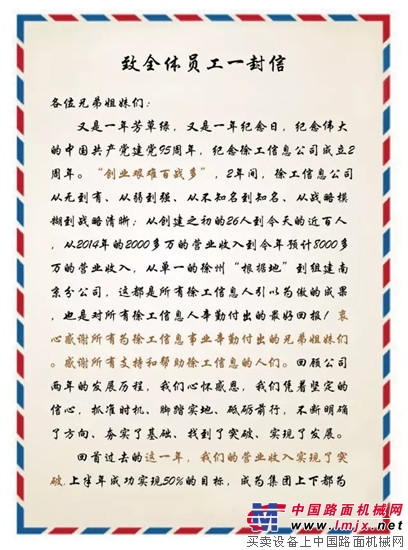 致全体员工一封信
各位兄弟姐妹们：
又是一年芳草绿，又是一年纪念日，纪念伟大
的中国共产党建党95周年，纪念徐工信息公司成立2
周年。“创业艰难百战多”，2年间，徐工信息公司
从无到有、从弱到强、从不知名到知名、从战略模
糊到战略清晰；从创建之初的26人到今天的近百人
，从2014年的2000多万的营业收入到今年预计8000多
万的营业收入，从单一的徐州“根据地”到组建南
京分公司，这都是所有徐工信息人引以为傲的成果
，也是对所有徐工信息人辛勤付出的最好回报！衷
心感谢所有为徐工信息事业辛勤付出的兄弟姐妹们
。感谢所有支持和帮助徐工信息的人们。回顾公司
两年的发展历程，我们心怀感恩，我们凭着坚定的
信心，抓准时机、脚踏实地、砥砺前行，不断明确
了方向、夯实了基础、找到了突破、实现了发展。
回首过去的这一年，我们的营业收入实现了突
破，上半年成功实现50%的目标，成为集团上下都为
中国路面机械网
www.lmjx.net
买卖设备上中国路面机械网